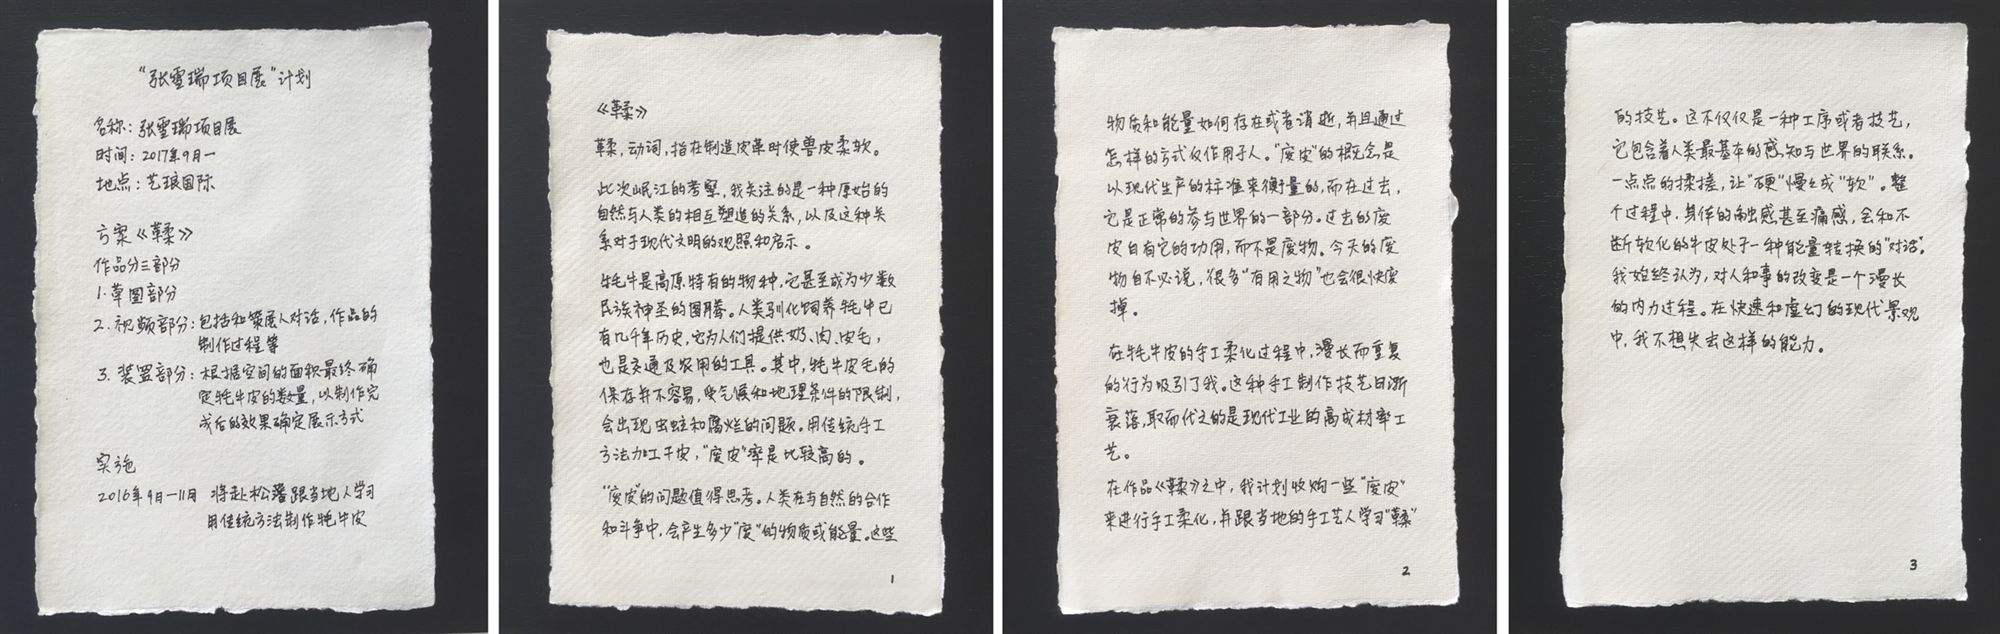 “张雪瑞项目展”计划
名称：张雪瑞项目展
时间：2017年9月—
地点：艺琅国际
方案《鞣》
作品分三部分
1.草图部分
2.视频部分：包括和策展人对话，作品的
制作过程等
3.装置部分：根据空间的面积最终确
定牦牛皮的数量，以制作完
成后的效果确定展示方式
实施
2016年9月—11月 将赴松潘跟当地人学习
用传统方法制作牦牛皮
《鞣》
鞣，动词，指在制造皮革时使兽皮柔软。
此次岷江的考察，我关注的是一种原始的
自然与人类的相互塑造的关系，以及这种关
系对于现代文明的观照和启示。
牦牛是高原特有的物种，它甚至成为少数
民族神圣的图腾。人类驯化饲养牦牛已
有几千年历史，它为人们提供奶、肉、皮毛，
也是交通及农用的工具。其中，牦牛皮毛的
保存并不容易，受气候和地理条件的限制，
会出现虫蛀和腐烂的问题。用传统手工
方法加工牛皮，“废皮”率是比较高的。
“废皮”的问题值得思考。人类在与自然的合作
和斗争中，会产生多少“废”的物质或能量。这些
1
物质和能量如何存在或者消逝，并且通过
怎样的方式反作用于人。“废皮”的概念是
以现代生产的标准来衡量的，而在过去，
它是正常的参与世界的一部分。过去的废
皮自有它的功用，而不是废物。今天的废
物自不必说，很多“有用之物”也会很快废
掉。
在牦牛皮的手工柔化过程中，漫长而重复
的行为吸引了我。这种手工制作技艺日渐
衰落，取而代之的是现代工业的高成材率工
艺。
在作品《鞣》之中，我计划收购一些“废皮”
来进行手工柔化，并跟当地的手工艺人学习“鞣”
2
的技艺。这不仅仅是一种工序或者技艺，
它包含着人类最基本的感知与世界的联系。
一点点的揉搓，让“硬”慢慢成“软”。整
个过程中，身体的触感甚至痛感，会和不
断软化的牛皮处于一种能量转换的“对话”。
我始终认为，对人和事的改变是一个漫长
的内力过程。在快速和虚幻的现代景观
中，我不想失去这样的能力。
3